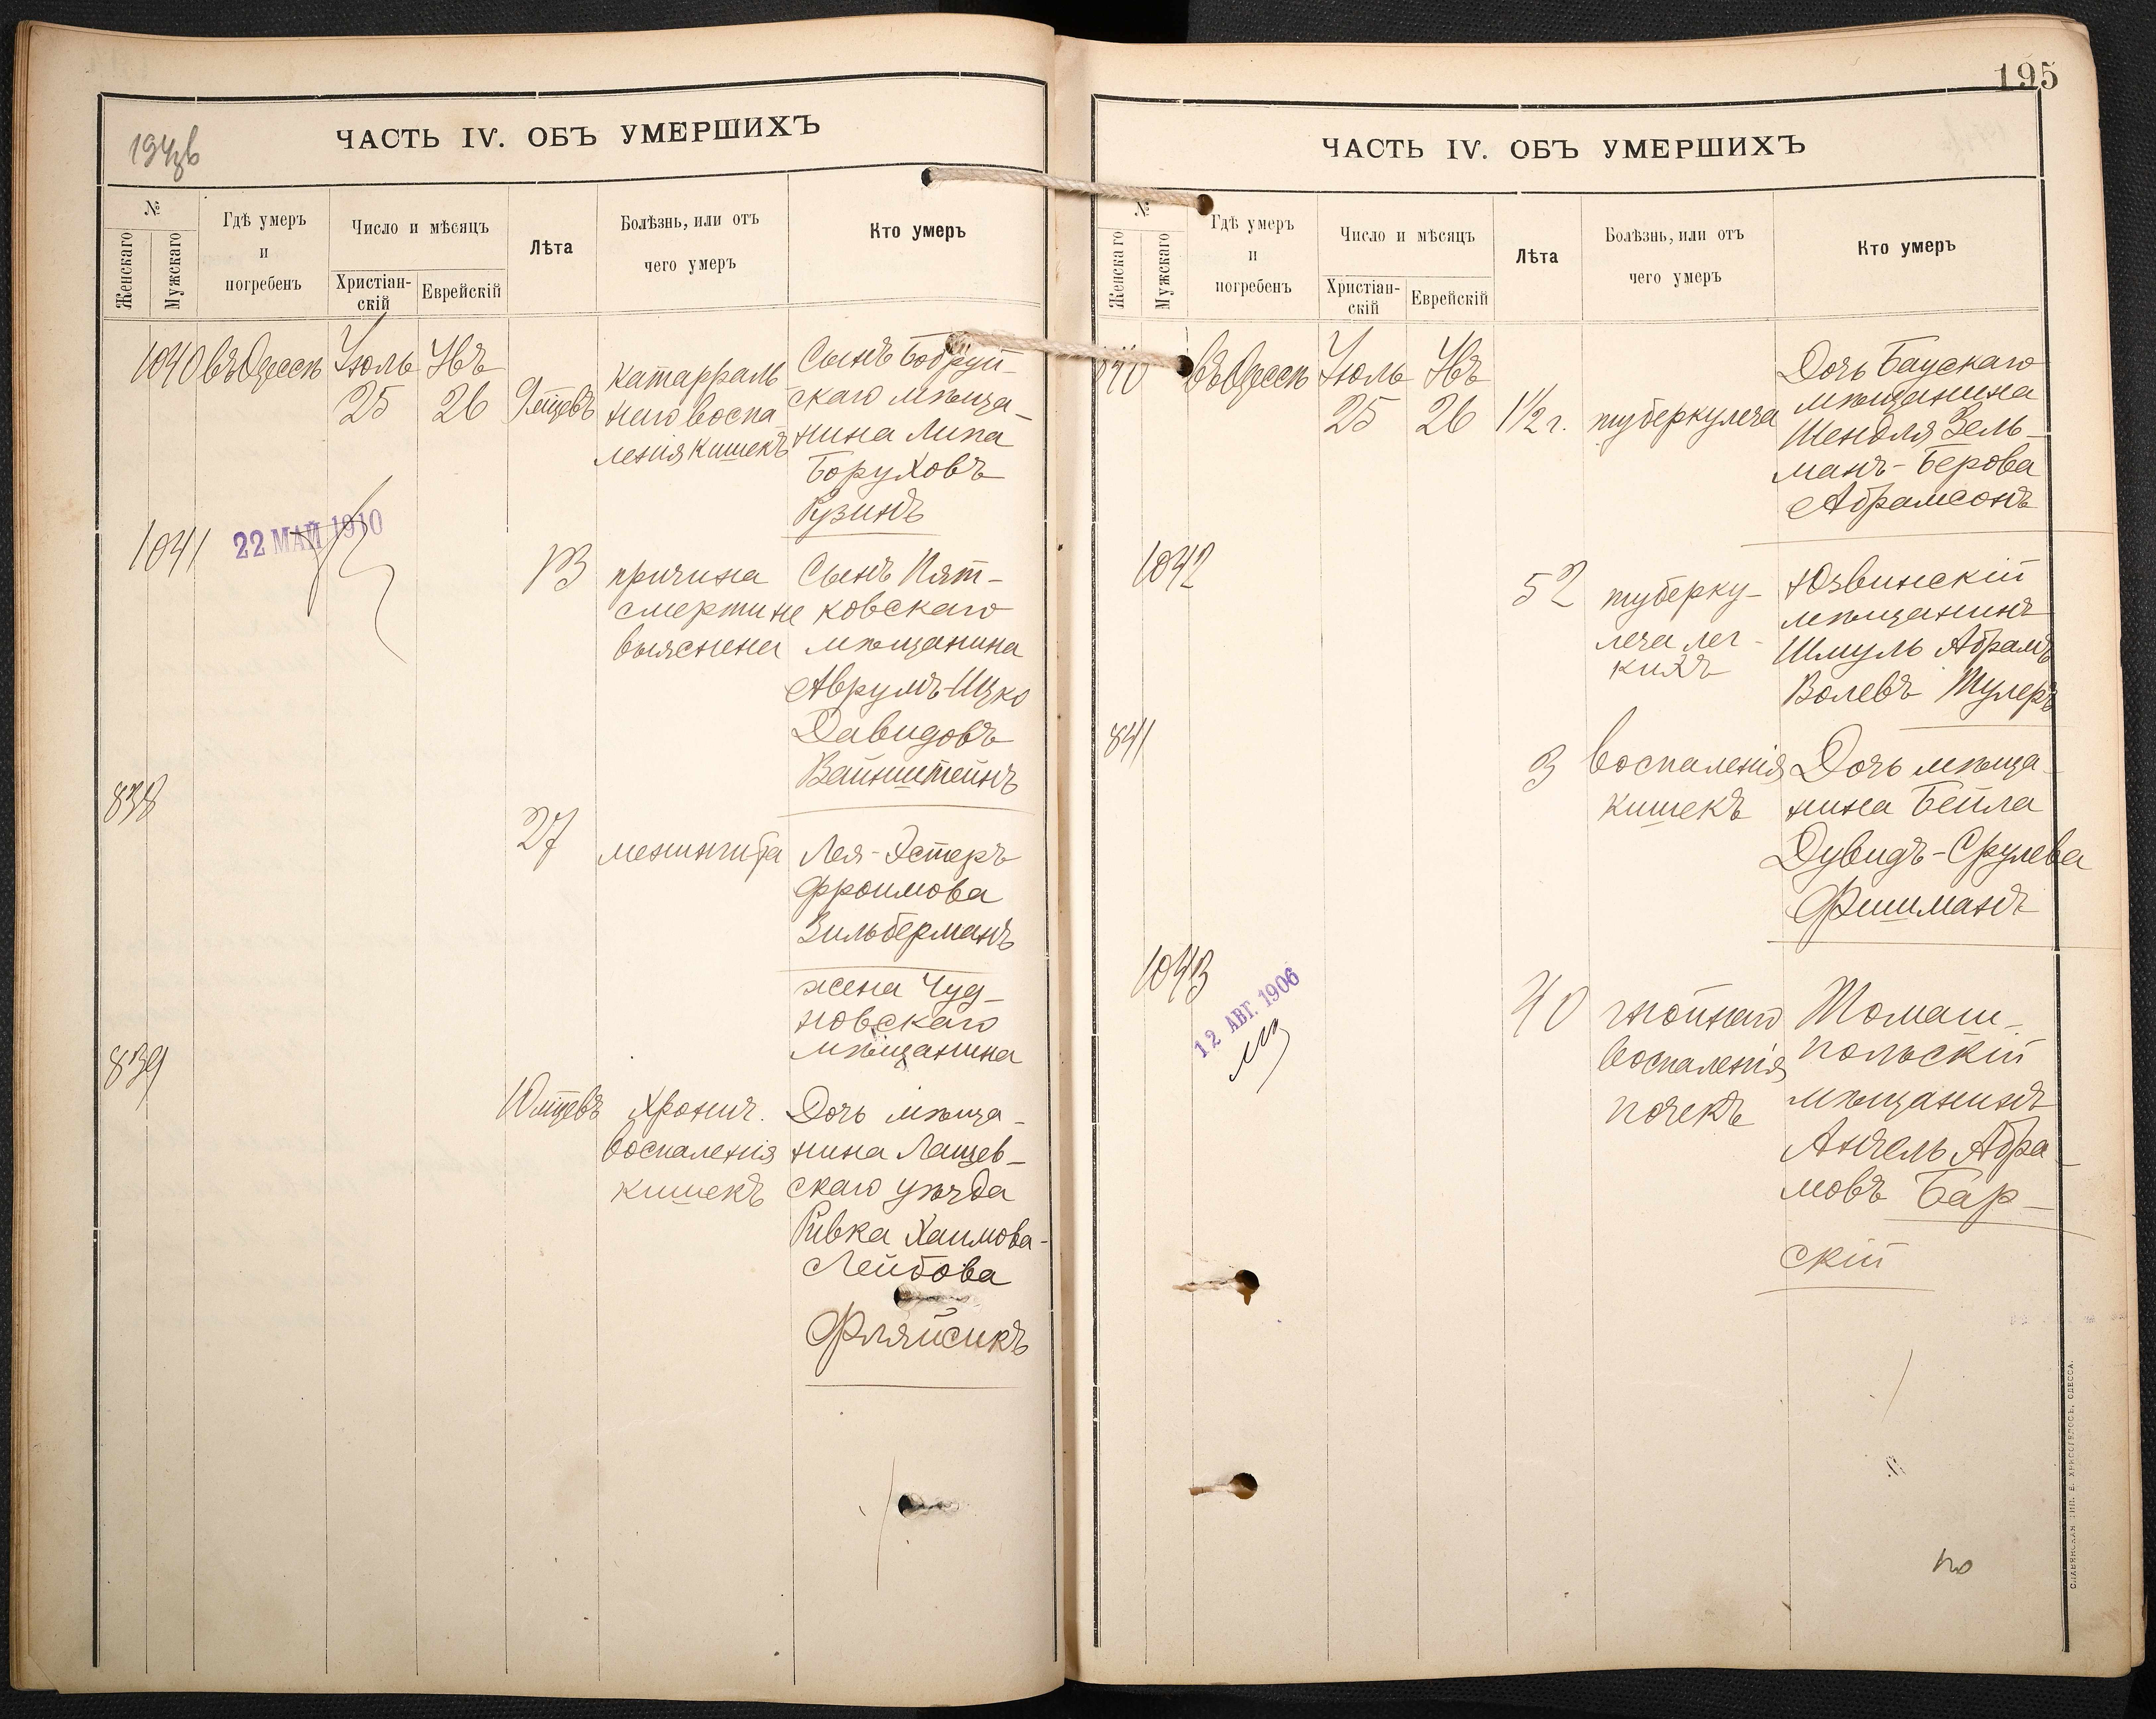 ЧАСТЬ IV. ОБЪ УМЕРШИХЪ
№
Женскаго
Мужскаго
Гдѣ умеръ
и
погребенъ
Число и мѣсяцъ
Христіан-
скій
Еврейскій
Лѣта
Болѣзнь, или отъ
чего умеръ
Кто умеръ
1040 въ Одессѣ Іюль Явъ
25 26 9 мцевъ
катарраль-
наго воспа-
ленія кишекъ
Сынъ Бобруй-
скаго мѣща-
нина Липа
Боруховъ
Рузинъ
1041
22 МАЙ 1910
13
причина
смерти не
выяснена
Сынъ Пят-
ковскаго
мѣщанина
Аврумъ-Ицко
Давидовъ
Вайнштейнъ
838
27
менингита
Лея-Эстеръ
Фроимова
Зильберманъ
жена Чуд-
новскаго
мѣщанина
839
10 мцевъ
Хронич.
воспаленія
кишекъ
Дочь мѣща-
нина Лащев-
скаго уѣзда
Ривка Хаимова-
Лейбова
Фляйсикъ
195
ЧАСТЬ IV. ОБЪ УМЕРШИХЪ
№
Женскаго
Мужскаго
Гдѣ умеръ
и
погребенъ
Число и мѣсяцъ
Христіан-
скій
Еврейскій
Лѣта
Болѣзнь, или отъ
чего умеръ
Кто умеръ
840 въ Одессѣ Іюль Явъ
25 26 1½ г.
туберкулеза
Дочь Баускаго
мѣщанина
Шендля Зель-
манъ-Берова
Абрамсонъ
1042
52
туберку-
леза лег-
кихъ
Юзвинскій
мѣщанинъ
Шмуль Абрамъ
Волевъ Тулеръ
841
3
воспаленія
кишекъ
Дочь мѣща-
нина Бейла
Дувидъ-Срулева
Фишманъ
1043
12 АВГ. 1906
40
гнойнаго
воспаленія
почекъ
Томаш-
польскій
мѣщанинъ
Анчель Абра-
мовъ Бар-
скій
СЛАВЯНСКАЯ ТИП. Е. ХРИСОГЕЛОСЪ, ОДЕССА.